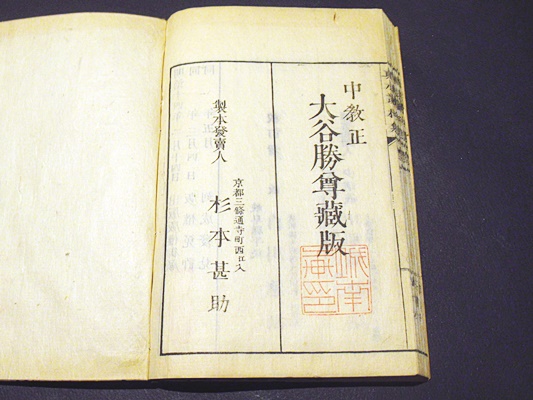 中教正
大谷勝尊藏版
製本發賣人
京都三條通寺町西ヱ入
杉本甚助